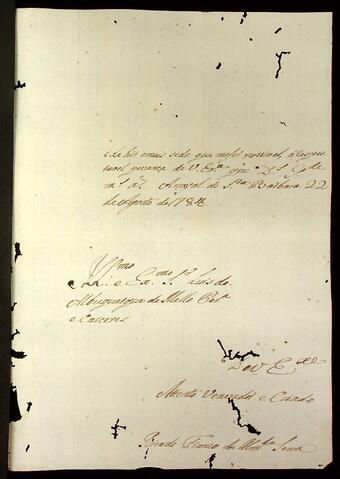 e da hi o mais sedo que me for possivel à respei
tavel prezença de V. Exª que D.s G.de
m.s a.s Arrayal de Sta Barbara 22
de Agosto de 1784
Illmo e Exmo Sr. Luis de
Albuquerque de Mello Per.ª
e Caceres
De V. Exª
Attento Venerador e Criado
Ricardo Franco de Almda Serra